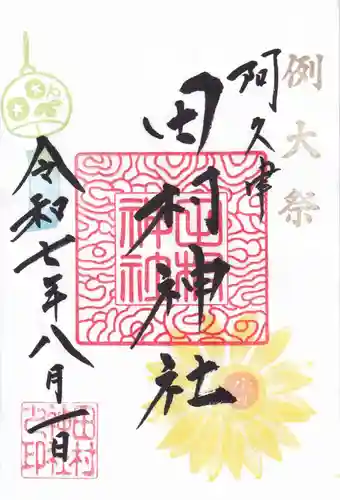 例大祭
阿久津
田村神社
田村神社
令和七年八月一日
田村
神社
之印